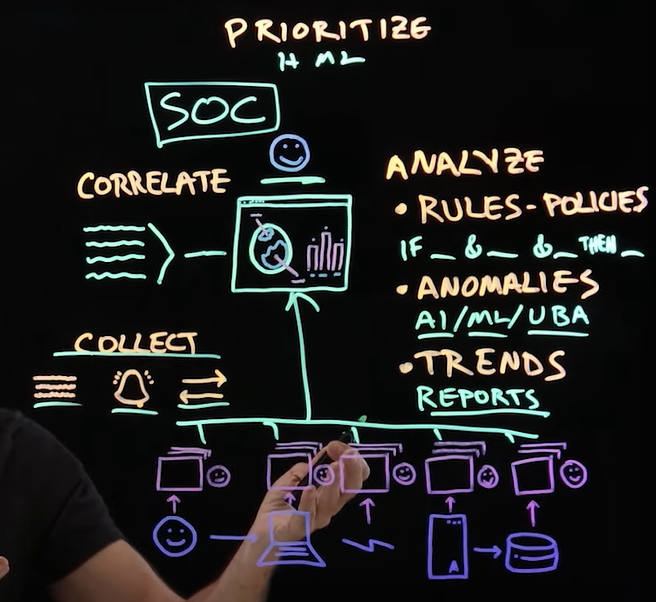 PRIORITIZE
H M L
SOC
CORRELATE
ANALYZE
• RULES-POLICIES
IF _ & _ & _ THEN _
• ANOMALIES
AI/ML/UBA
• TRENDS
REPORTS
COLLECT
A